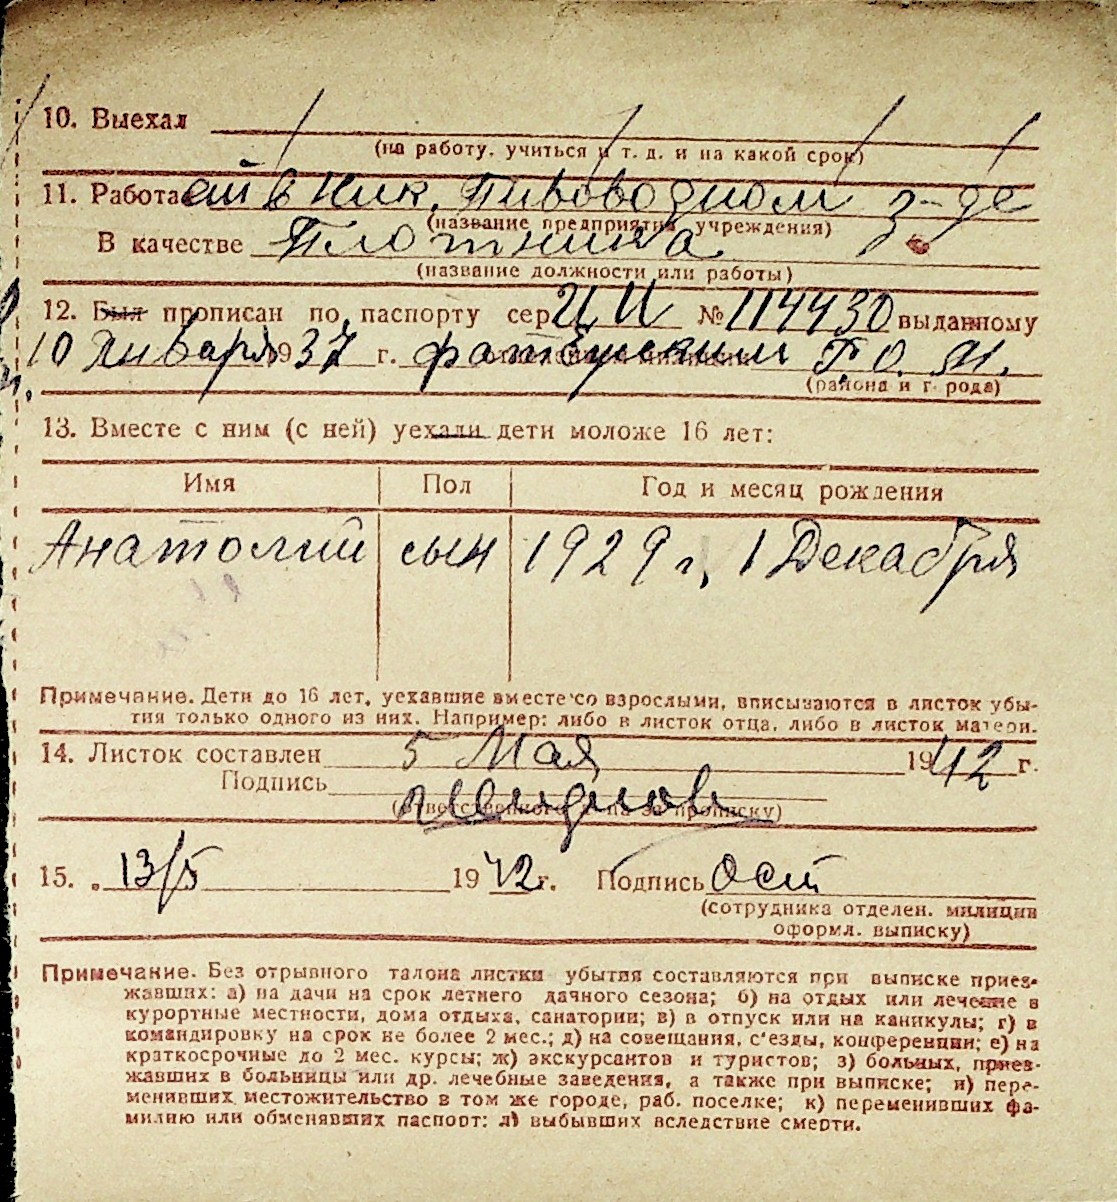 10. Выехал
(на работу, учиться и т. д. и на какой срок)
11. Работает в Ник. Пивоводном з-де
(название предприятия учреждения)
В качестве Плотника
(название должности или работы)
12. Был прописан по паспорту сер. ИИ № 114430 выданному
10 Января 1937 г. Фатежским Г.О.М.
(района и города)
13. Вместе с ним (с ней) уехали дети моложе 16 лет:
Имя Пол Год и месяц рождения
Анатолий сын 1929 г, 1 Декабря
Примечание. Дети до 16 лет, уехавшие вместе со взрослыми, вписываются в листок убы-
тия только одного из них. Например: либо в листок отца, либо в листок матери.
14. Листок составлен 5 Мая 1942 г.
Подпись
(ответственного лица за прописку)
15. 13/5 1942 г. Подпись Ост
(сотрудника отделен. милиции
оформл. выписку)
Примечание. Без отрывного талона листки убытия составляются при выписке приез-
жавших: а) на дачи на срок летнего дачного сезона; б) на отдых или лечение в
курортные местности, дома отдыха, санатории; в) в отпуск или на каникулы; г) в
командировку на срок не более 2 мес.; д) на совещания, с'езды, конференции; е) на
краткосрочные до 2 мес. курсы; ж) экскурсантов и туристов; з) больных, приез-
жавших в больницы или др. лечебные заведения, а также при выписке; и) пере-
менивших местожительство в том же городе, раб. поселке; к) переменивших фа-
милию или обменявших паспорт; л) выбывших вследствие смерти.